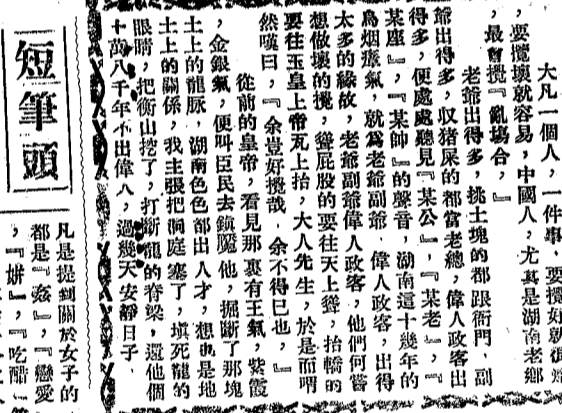 大凡一個人，一件事，要攪好就很
，要攪壞就容易，中國人，尤其是湖南老鄉
，最會攪『亂場合。』
老爺出得多，挑土塊的都跟衙門，副
爺出得多，収猪屎的都當老總，偉人政客出
得多，便處處聽見『某公』，『某老』，『
某座』，『某帥』的聲音，湖南這十幾年的
烏烟瘴氣，就爲老爺副爺，偉人政客，出得
太多的緣故，老爺副爺偉人政客，他們何嘗
想做壞的攪，聳屁股的要往天上聳，抬轎的
要往玉皇上帝瓦上抬，大人先生，於是而喟
然嘆曰，『余豈好攪哉，余不得已也，』
從前的皇帝，看見那裏有王氣，紫霞
，金銀氣，便叫臣民去鎮魘他，掘斷了那塊
土上的龍脉，湖南色色都出人才，想也是地
土上的關係，我主張把洞庭塞了，填死龍的
眼睛，把衡山挖了，打斷龍的脊梁，還他個
十萬八千年不出偉人，過幾天安靜日子，
短筆頭
凡是提到關於女子的
都是『姦』，『戀愛
，『妍』，『吃醋』